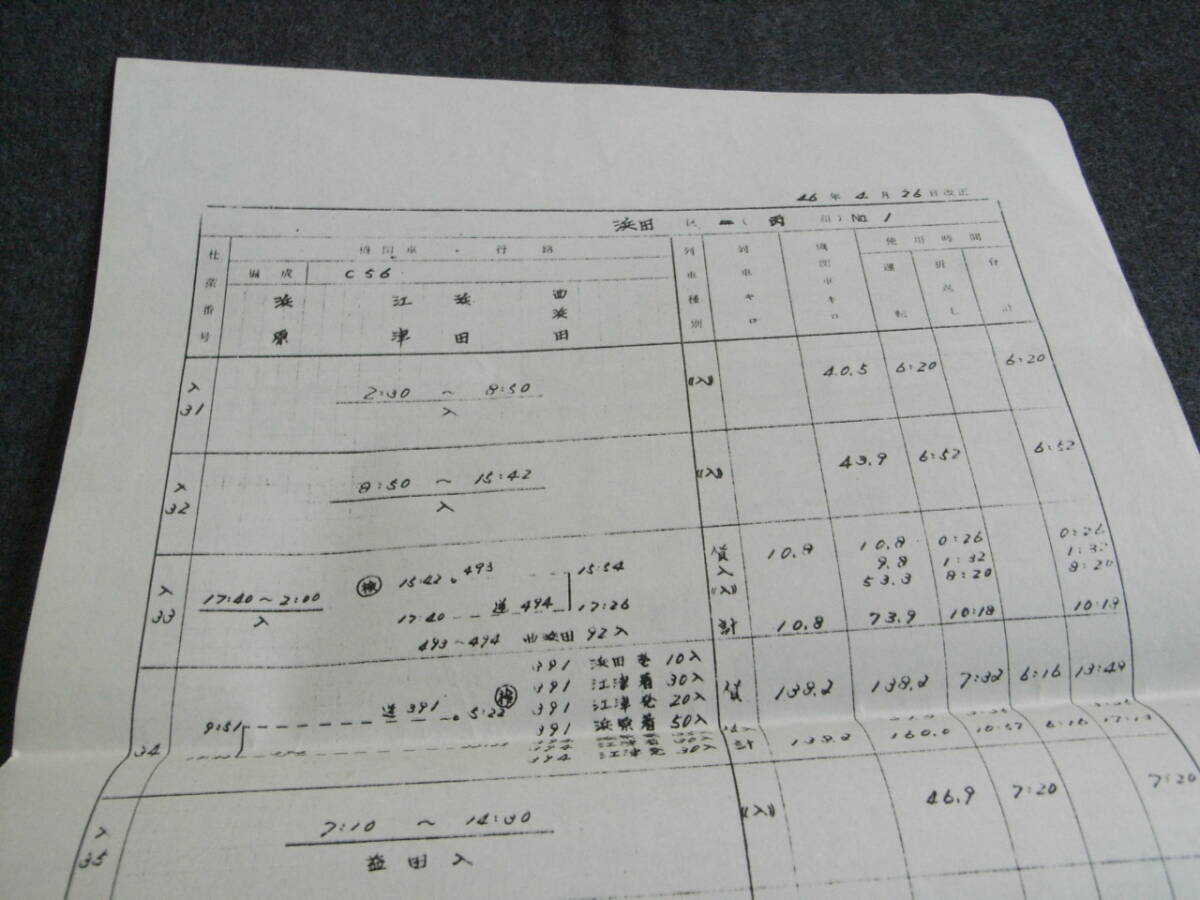 46年4月26日改正
浜田 区 ( 丙 組) No. 1
仕業番号 機関車・行路 列車種別 列車キロ 機関車キロ 使用時間
運転 折返し 合計
編成 C56
浜原 江津 浜田 西浜田
入31 2:30 ~ 8:50 《入》 40.5 6:20 6:20
入
入32 8:50 ~ 15:42 《入》 43.9 6:52 6:52
入
入33 17:40~2:00 検 15:42 493 15:54 貨 10.8 10.8 0:26 0:26
入 入 9.8 1:32 1:32
17:40 送 494 17:26 《入》 53.3 8:20 8:20
493~494 西浜田 92入 計 10.8 73.9 10:18 10:18
391 浜田発 10入
検 391 江津着 30入
送 391 391 江津発 20入 貨 138.2 138.2 7:32 6:16 13:49
9:51 5:22 391 浜原着 50入
34 394 江津発 30入 計 138.2 160.0 10:57 6:16
入35 7:10 ~ 14:30 《入》 46.9 7:20 7:20
益田入